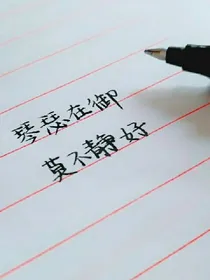 琴瑟在御
莫不静好